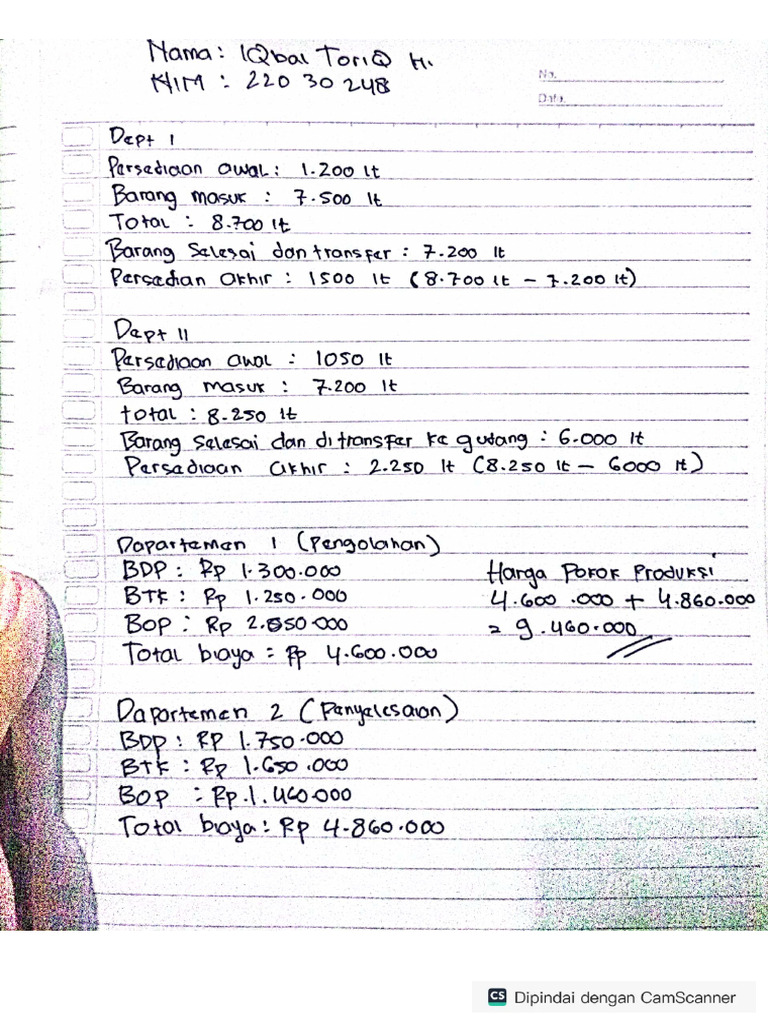 Nama: IQbal ToriQ H.
NIM : 220 30 248
No.
Date.
Dept I
Persediaan awal: 1.200 lt
Barang masuk : 7.500 lt
Total : 8.700 lt
Barang selesai dan transfer : 7.200 lt
Persedian akhir : 1500 lt (8.700 lt - 7.200 lt)
Dept II
Persediaan awal : 1050 lt
Barang masuk : 7.200 lt
total : 8.250 lt
Barang selesai dan di transfer ke gudang : 6.000 lt
Persediaan akhir : 2.250 lt (8.250 lt - 6000 lt)
Departemen 1 (Pengolahan)
BDP : Rp 1.300.000
Harga Pokok Produksi
BTK : Rp 1.250.000
4.600.000 + 4.860.000
BOP : Rp 2.050.000
= 9.460.000
Total biaya = Rp 4.600.000
Departemen 2 (Penyelesaian)
BDP : RP 1.750.000
BTK : Rp 1.650.000
BOP : Rp.1.460.000
Total biaya : Rp 4.860.000
CS Dipindai dengan CamScanner